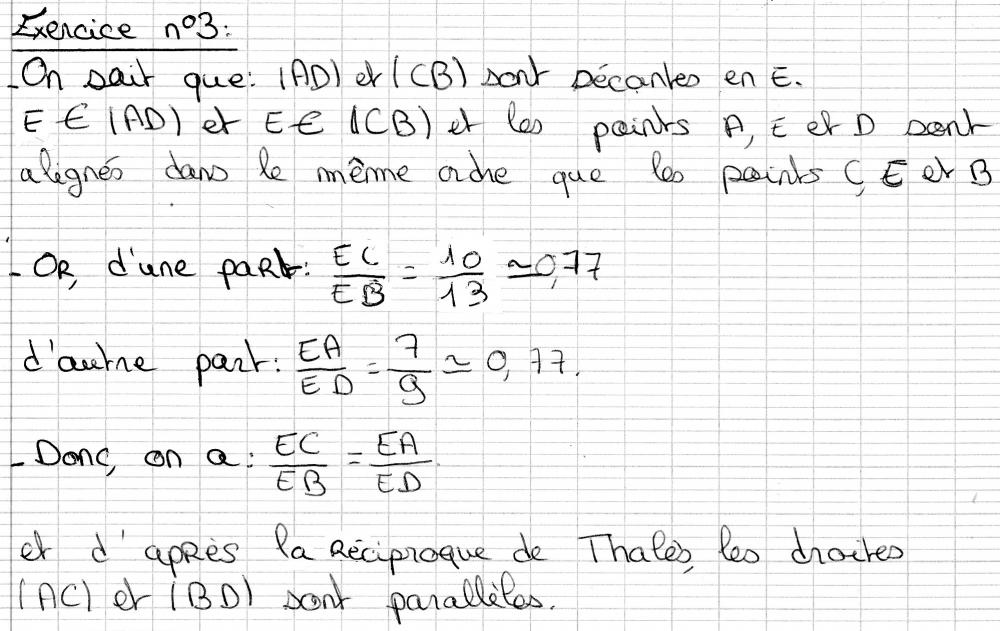 Exercice n°3:
- On sait que: (AD) et (CB) sont sécantes en E.
E ∈ (AD) et E ∈ (CB) et les points A, E et D sont
alignés dans le même ordre que les points C, E et B
- Or, d'une part: EC/EB = 10/13 ≃ 0,77
d'autre part: EA/ED = 7/9 ≃ 0,77.
- Donc, on a: EC/EB = EA/ED
et d'après la réciproque de Thalès, les droites
(AC) et (BD) sont parallèles.